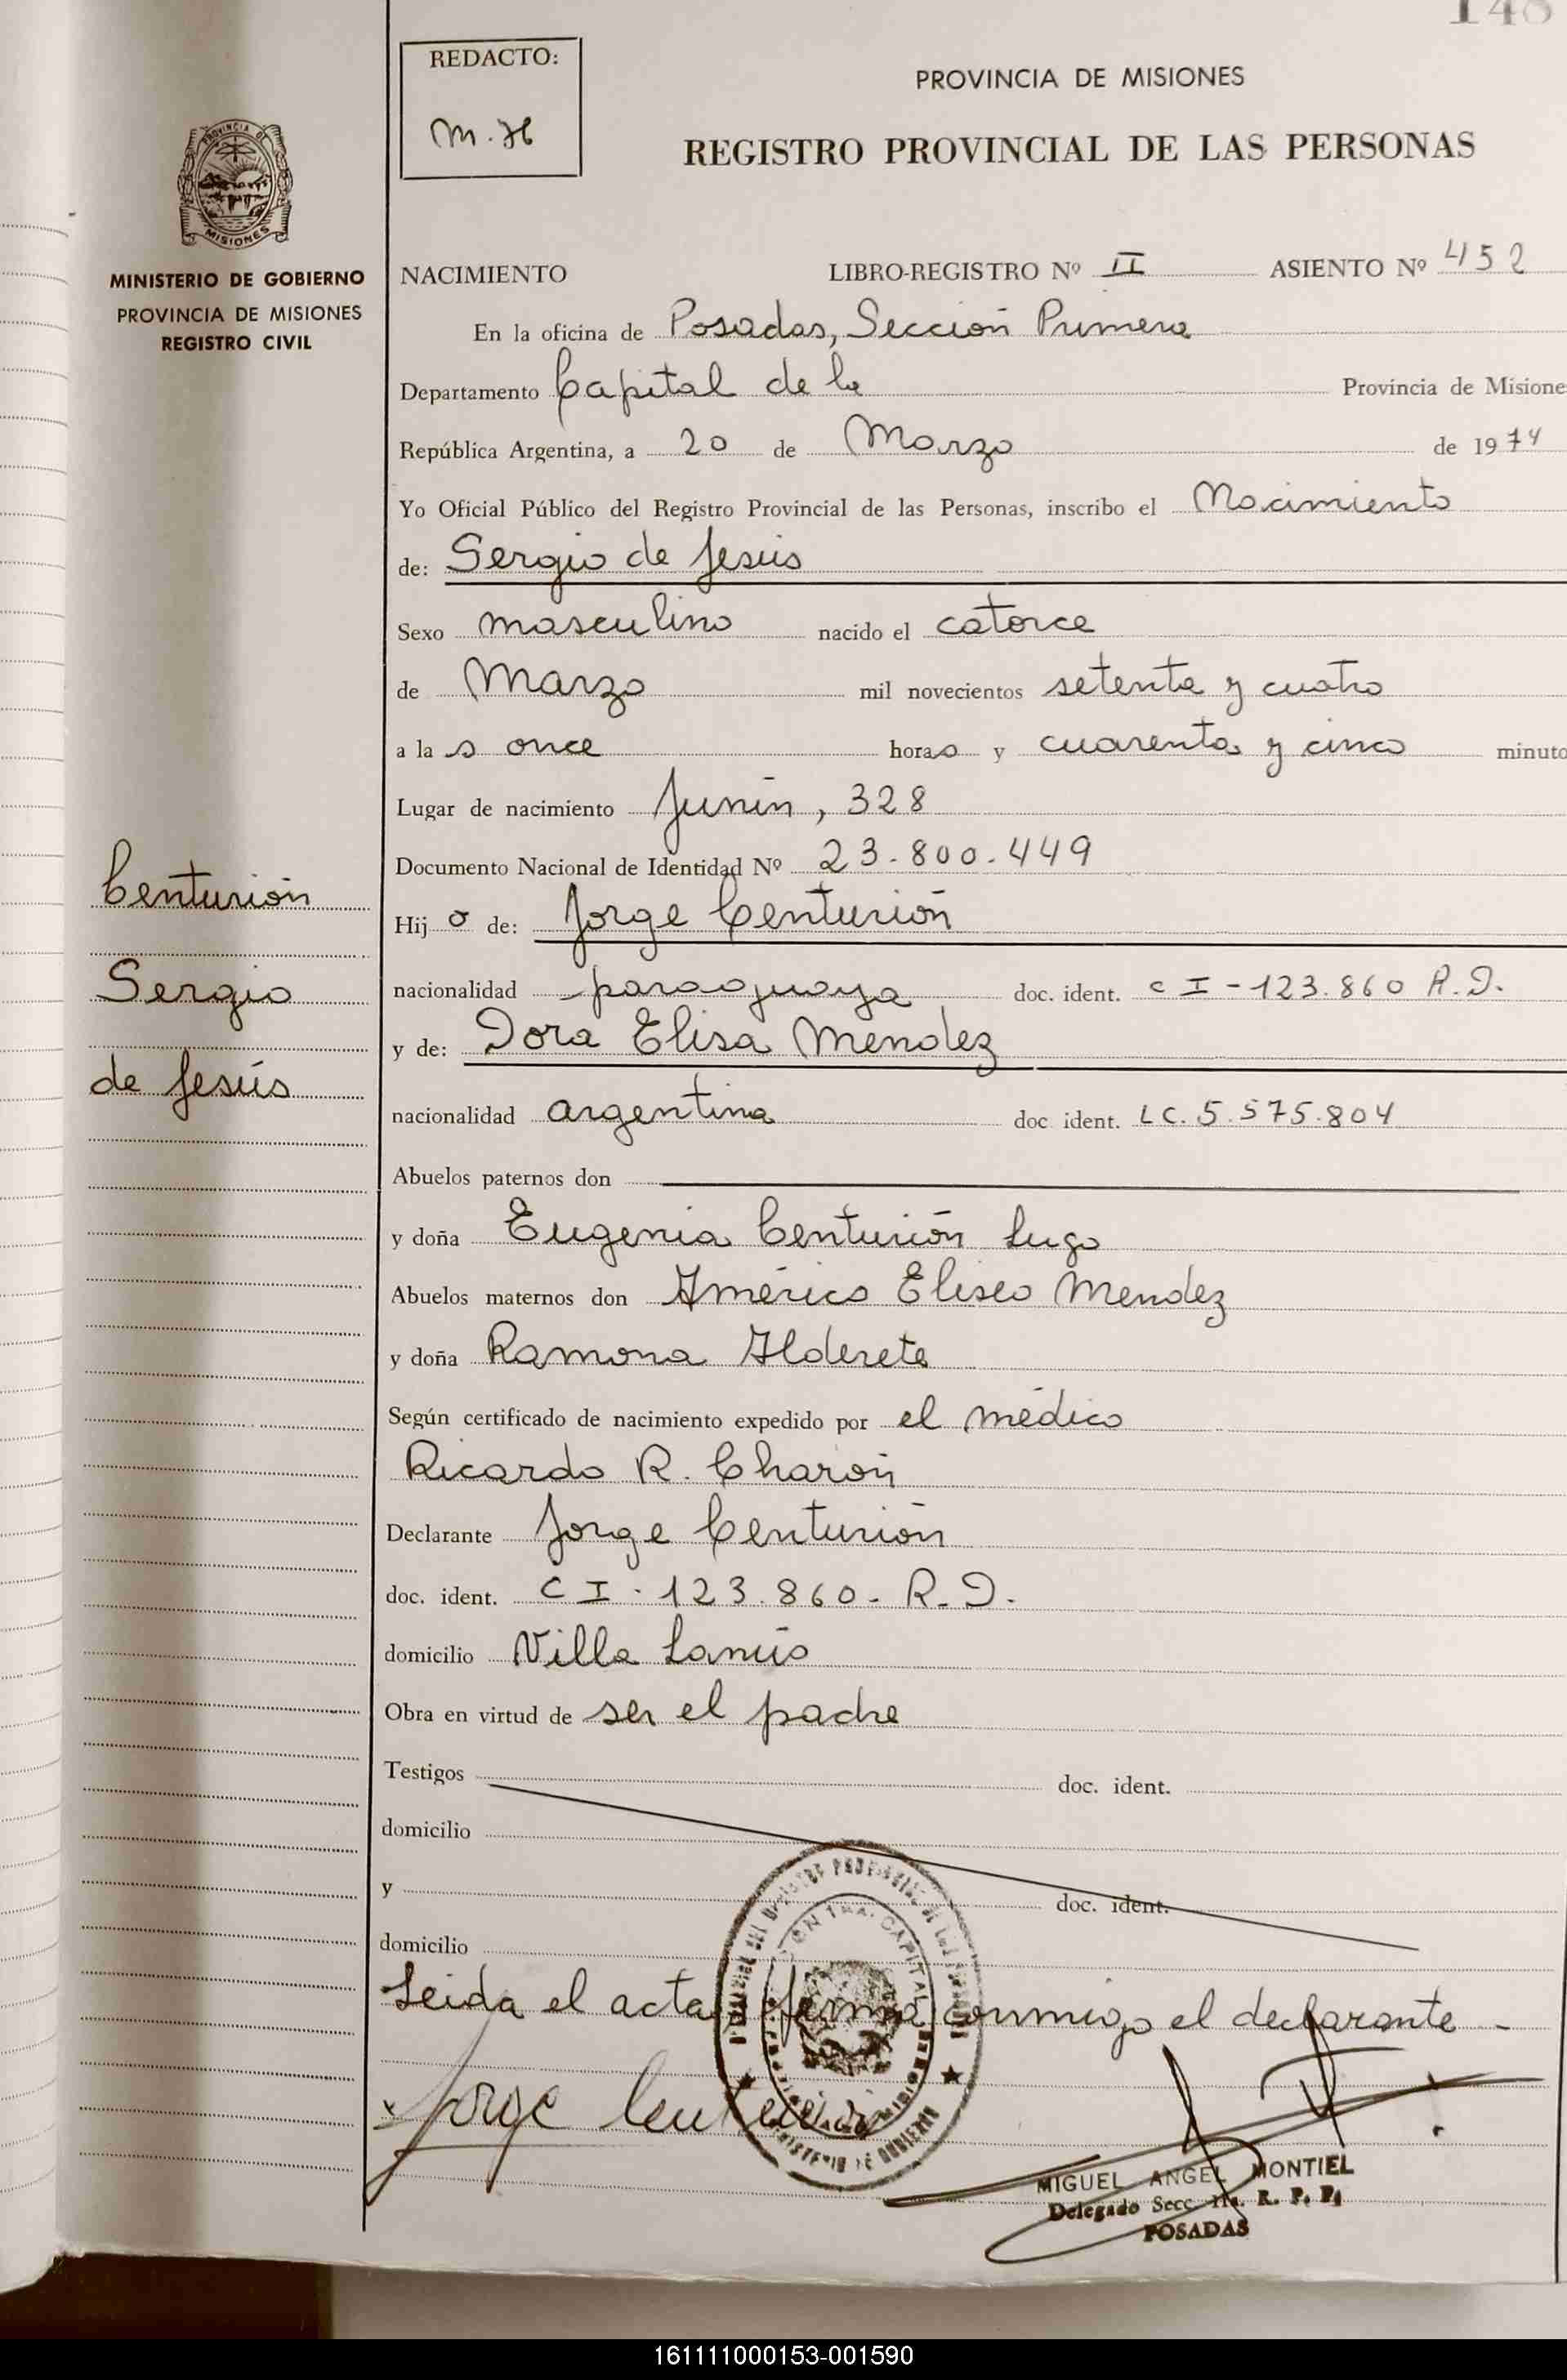 148
REDACTO:
M.H
PROVINCIA DE MISIONES
REGISTRO PROVINCIAL DE LAS PERSONAS
PROVINCIA DE
MISIONES
MINISTERIO DE GOBIERNO
PROVINCIA DE MISIONES
REGISTRO CIVIL
NACIMIENTO LIBRO-REGISTRO Nº II ASIENTO Nº 452
En la oficina de Posadas, Sección Primera
Departamento Capital de la Provincia de Misione
República Argentina, a 20 de Marzo de 1974
Yo Oficial Público del Registro Provincial de las Personas, inscribo el Nacimiento
de: Sergio de Jesús
Sexo masculino nacido el catorce
de Marzo mil novecientos setenta y cuatro
a la s once horas y cuarenta y cinco minuto
Lugar de nacimiento Junín, 328
Documento Nacional de Identidad Nº 23.800.449
Hij o de: Jorge Centurión
nacionalidad paraguaya doc. ident. C I - 123.860 R.D.
y de: Dora Elisa Mendez
nacionalidad argentina doc ident. LC. 5.575.804
Abuelos paternos don
y doña Eugenia Centurión Lugo
Abuelos maternos don Américo Eliseo Mendez
y doña Ramona Alderete
Según certificado de nacimiento expedido por el médico
Ricardo R. Charón
Declarante Jorge Centurión
doc. ident. C I - 123.860 - R.D.
domicilio Villa Lanús
Obra en virtud de ser el padre
Testigos doc. ident.
domicilio
y doc. ident.
domicilio
Leida el acta, firma conmigo el declarante -
x Jorge Centurión
MIGUEL ANGEL MONTIEL
Delegado Secc. 1ra. R. P. P.
POSADAS
Centurión
Sergio
de Jesús
161111000153-001590